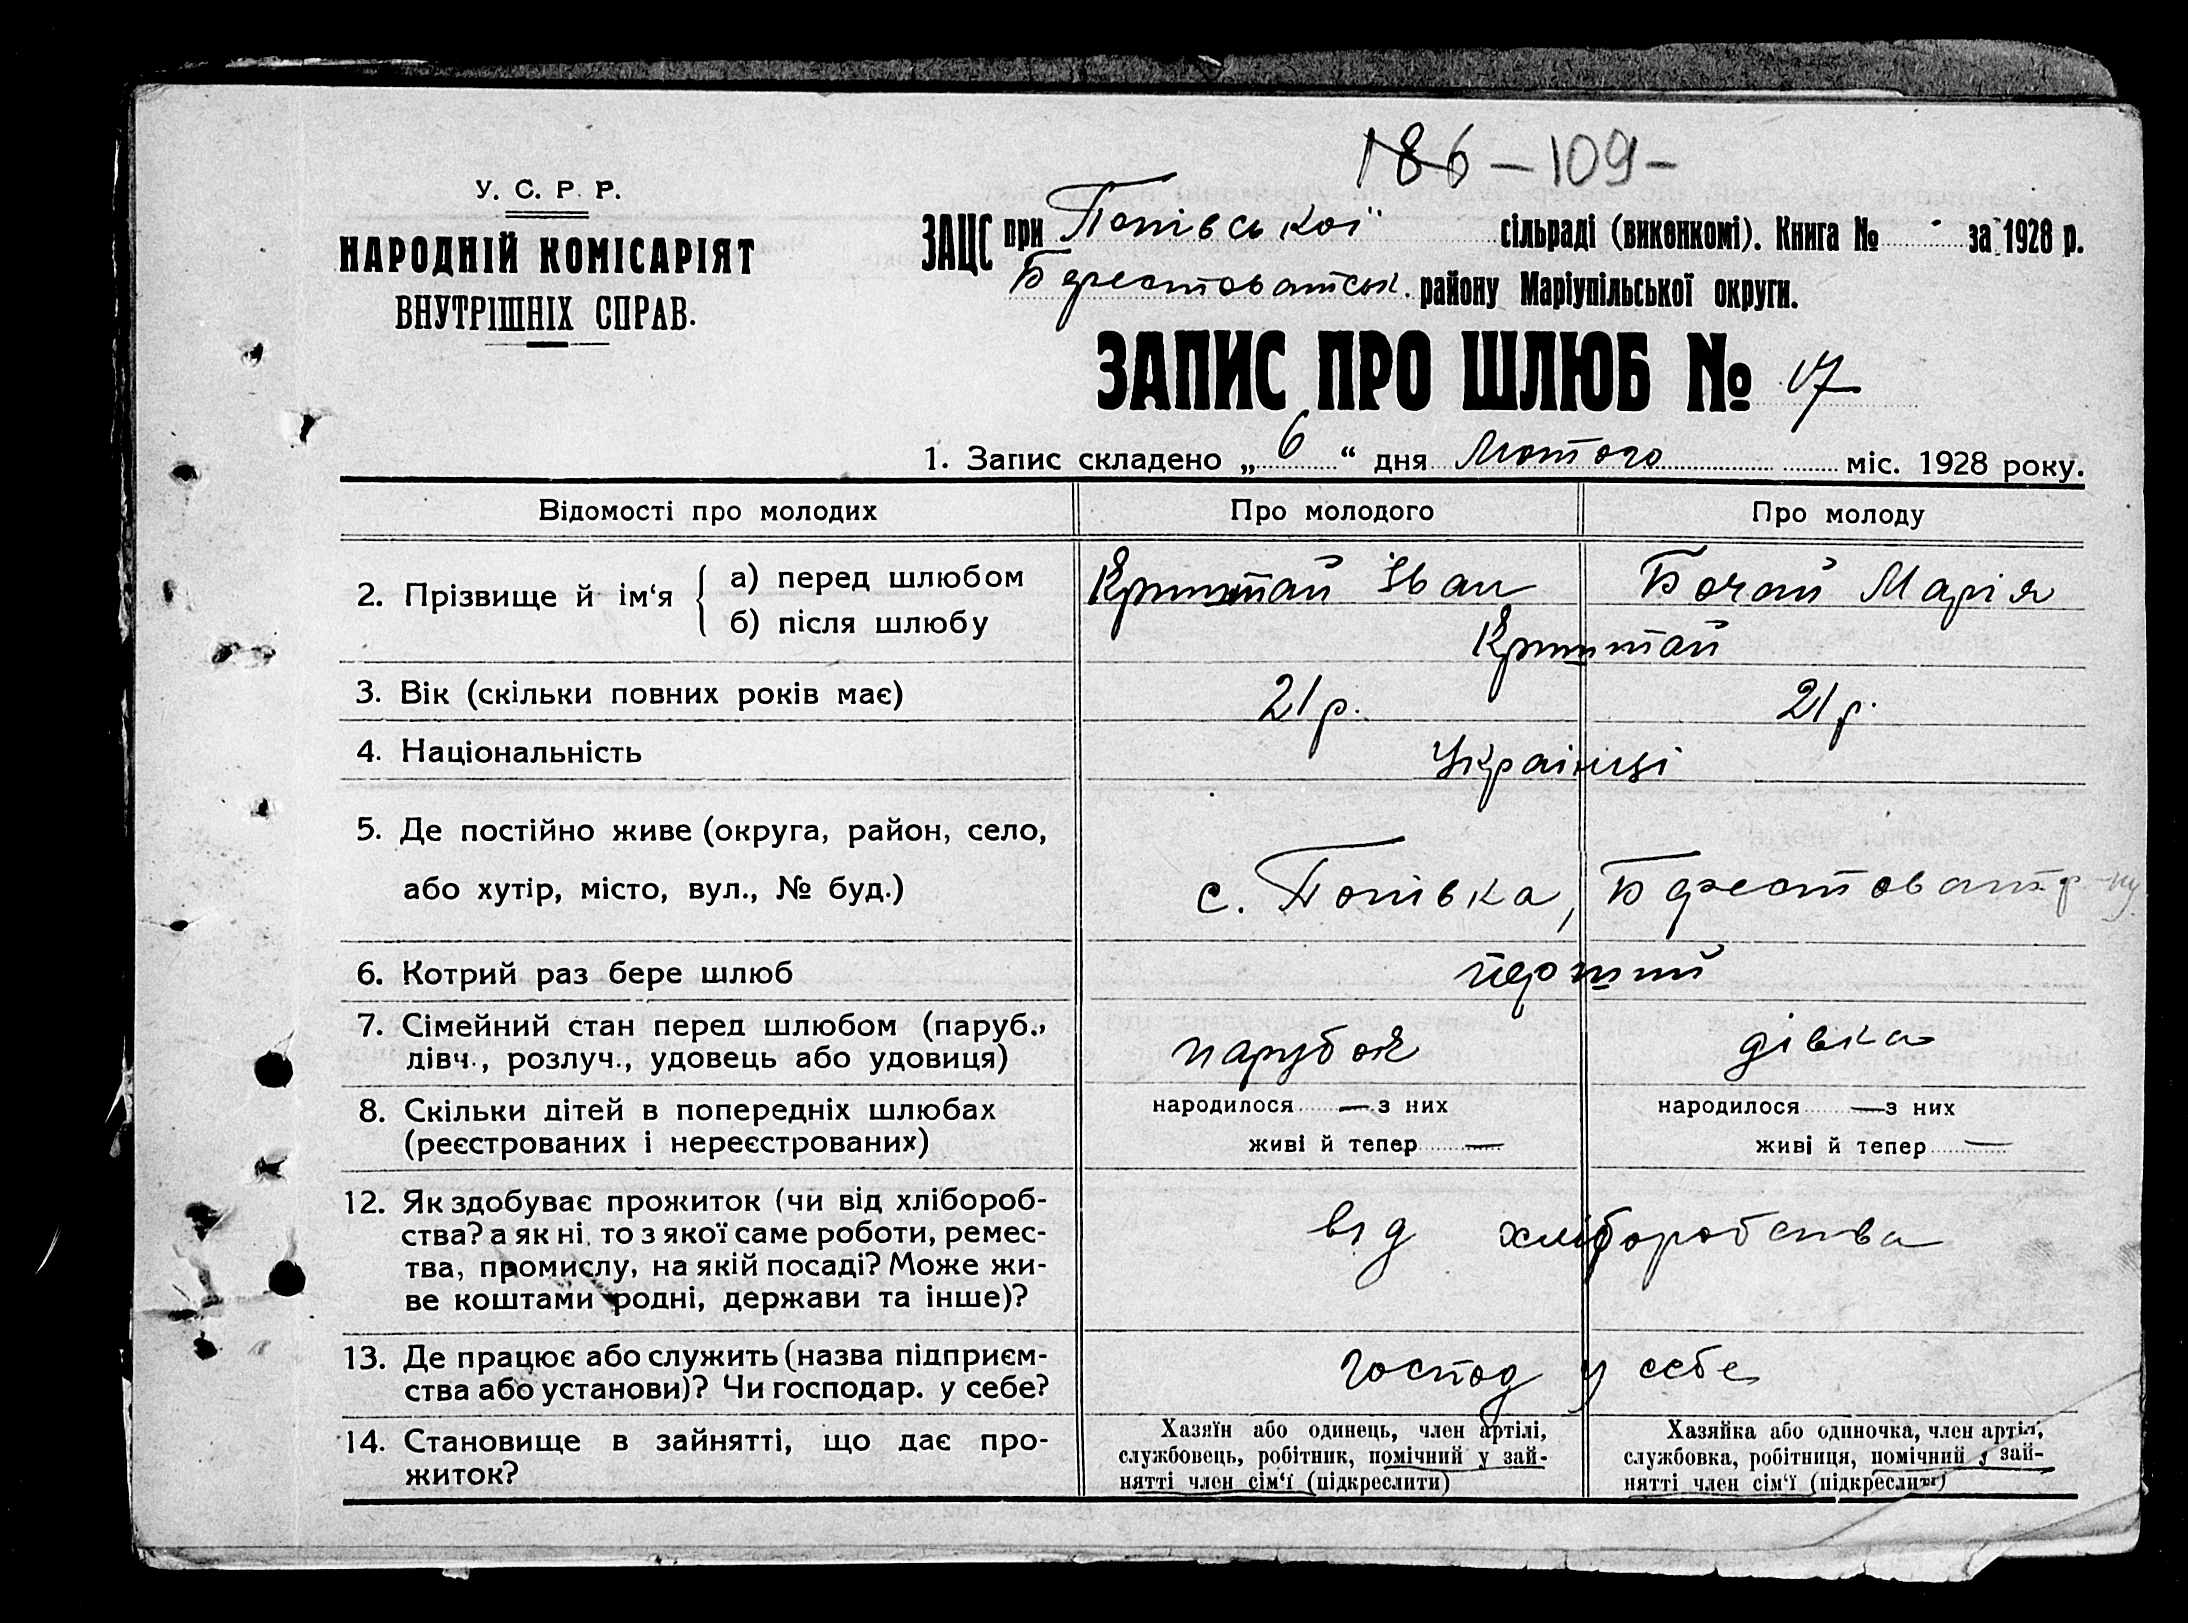 186 – 109 –
У. С. Р. Р.
НАРОДНІЙ КОМІСАРІЯТ
ВНУТРІШНІХ СПРАВ.
ЗАЦС при Попівської сільраді (викенкомі). Книга № за 1928 р.
району Маріупільської округи.
ЗАПИС ПРО ШЛЮБ № 17
1. Запис складено „ 6 “ дня Лютого міс. 1928 року.
Відомості про молодих Про молодого Про молоду
2. Прізвище й ім‘я а) перед шлюбом Криштай Іван Бочай Марія
б) після шлюбу Криштай
3. Вік (скільки повних років має) 21 р. 21 р.
4. Національність Українці
5. Де постійно живе (округа, район, село,
або хутір, місто, вул., № буд.) с. Попівка,
6. Котрий раз бере шлюб перший
7. Сімейний стан перед шлюбом (паруб.,
дівч., розлуч., удовець або удовиця) парубок дівка
8. Скільки дітей в попередніх шлюбах народилося — з них народилося — з них
(реєстрованих і нереєстрованих) живі й тепер — живі й тепер —
12. Як здобуває прожиток (чи від хлібороб-
ства? а як ні, то з якої саме роботи, ремес- від хліборобства
тва, промислу, на якій посаді? Може жи-
ве коштами родні, держави та інше)?
13. Де працює або служить (назва підприєм-
ства або установи)? Чи господар. у себе? господ у себе
14. Становище в зайнятті, що дає про-
житок?
Хазяїн або одинець, член артілі,
службовець, робітник, помічний у зай-
нятті член сім‘ї (підкреслити)
Хазяйка або одиночка, член артілі,
службовка, робітниця, помічний у зай-
нятті член сім‘ї (підкреслити)